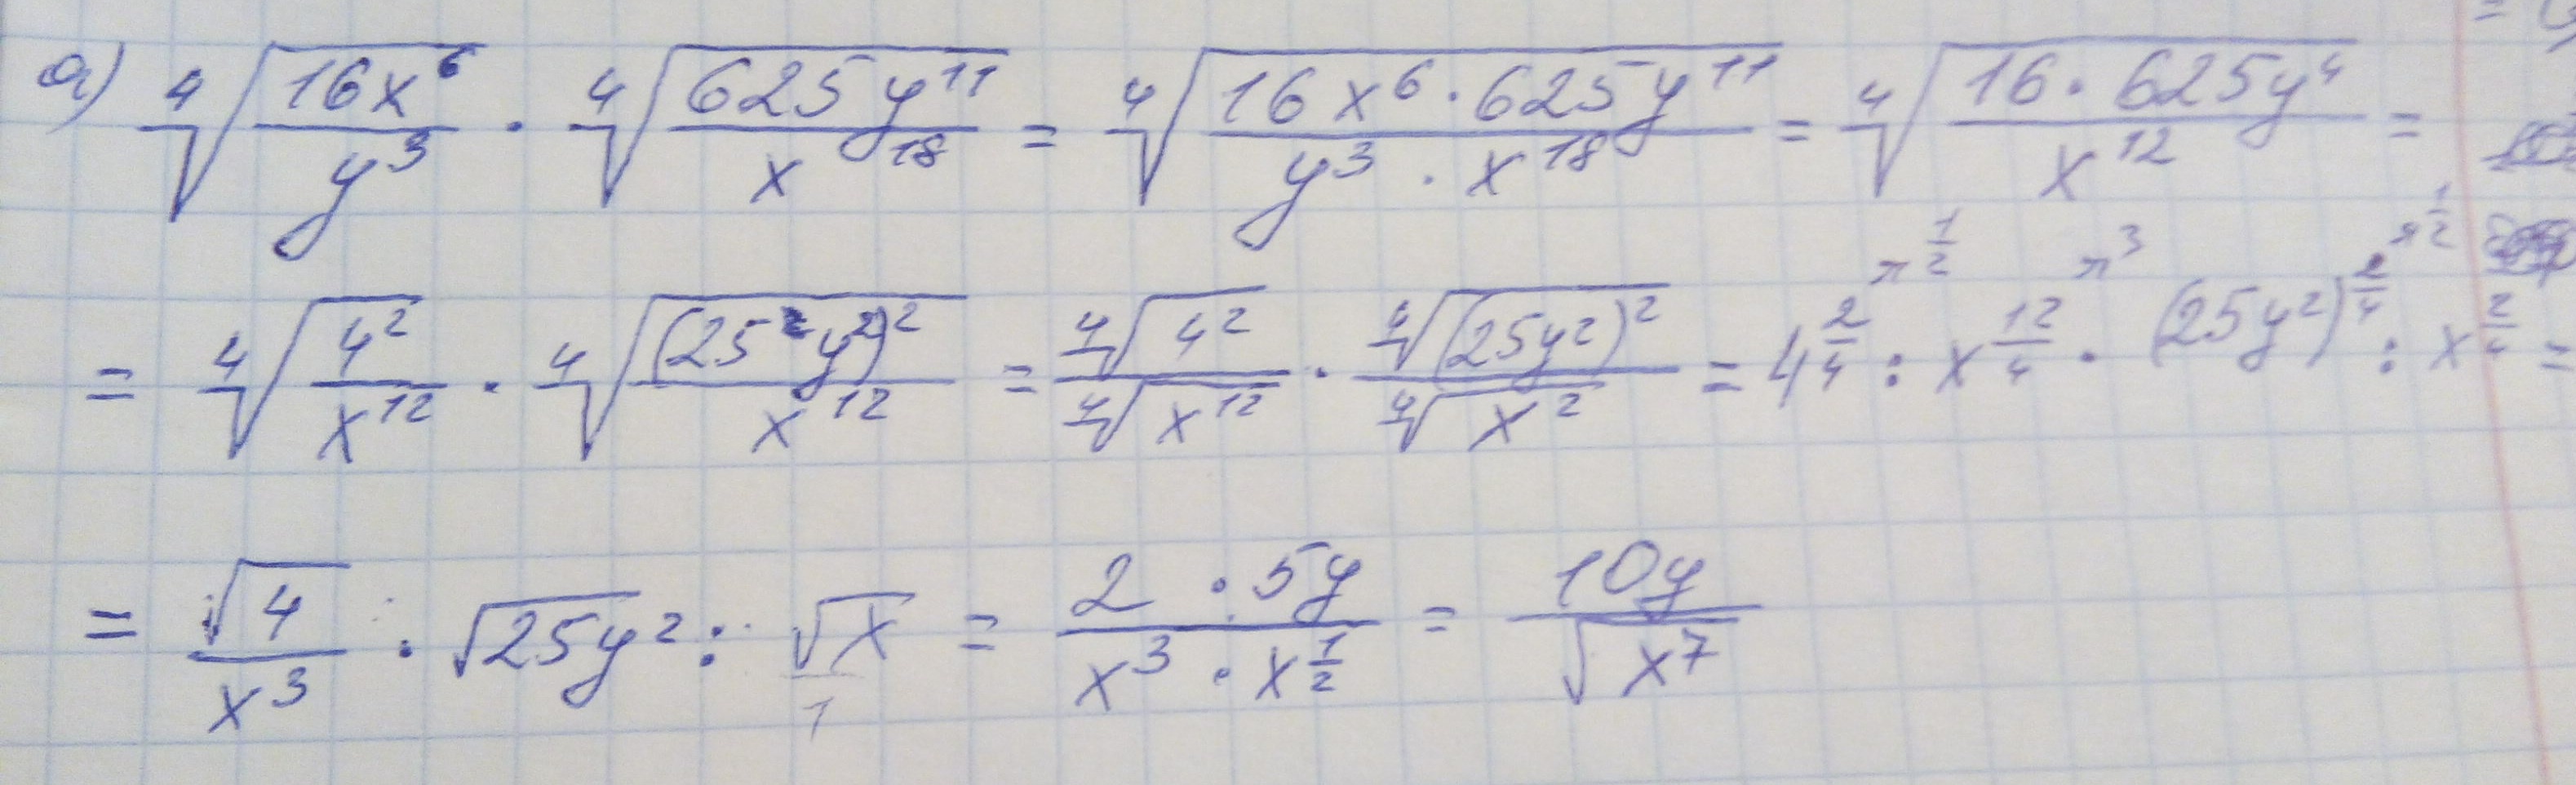 а) ⁴√(16x⁶/y³) · ⁴√(625y¹¹/x¹⁸) = ⁴√((16x⁶ · 625y¹¹)/(y³ · x¹⁸)) = ⁴√((16 · 625y⁴)/x¹²) =
= ⁴√(4²/x¹²) · ⁴√((25²y²)²/x¹²) = ⁴√(4²)/⁴√(x¹²) · ⁴√((25y²)²)/⁴√(x²) = 4^(2/4)↗^(1/2) : x^(12/4)↗^3 · (25y²)^(2/4)↗^(1/2) : x^(2/4) =
= √4/x³ · √25y² : √x/1 = (2 · 5y)/(x³ · x^(1/2)) = 10y/√(x⁷)